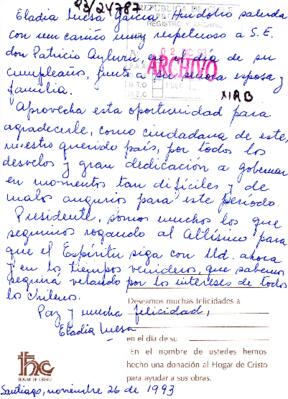 93/24787
REPUBLICA DE
Eladia Mesa García Huidobro saluda
con un cariño muy respetuoso a S.E.
don Patricio Aylwin, de su
cumpleaños, junto a su esposa y
familia.
ARCHIVO
Aprovecha esta oportunidad para
agradecerle, como ciudadana de este,
nuestro querido país, por todos los
desvelos y gran dedicación a gobernar
en momentos tan difíciles y de
malos augurios para este período
Presidente, somos muchos los que
seguimos rogando al Altísimo para
que el Espíritu siga con Ud. ahora
y en los tiempos venideros, que sabemos
seguirá velando por los intereses de todos
los chilenos.
Deseamos muchas felicidades a
Paz y mucha felicidad,
Eladia Mesa
en el día de su
En el nombre de ustedes hemos
hecho una donación al Hogar de Cristo
para ayudar a sus obras.
hc
HOGAR DE CRISTO
Santiago, noviembre 26 de 1993